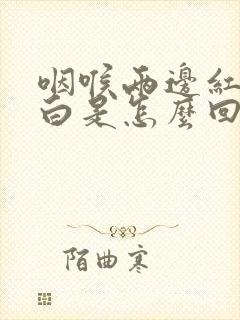 咽喉兩邊紅
白是怎麼回
陌曲寒